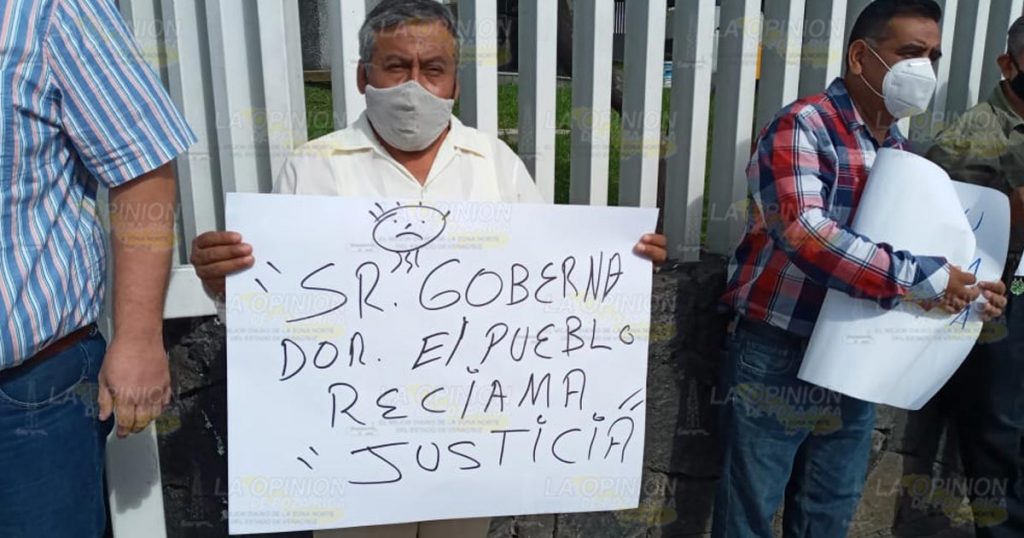 "SR. GOBERNA
DOR. El PUEBLO
RECLAMA
"JUSTICIA"
LA OPINION
EL MEJOR DIARIO DE LA ZONA NORTE
DEL ESTADO DE VERACRUZ